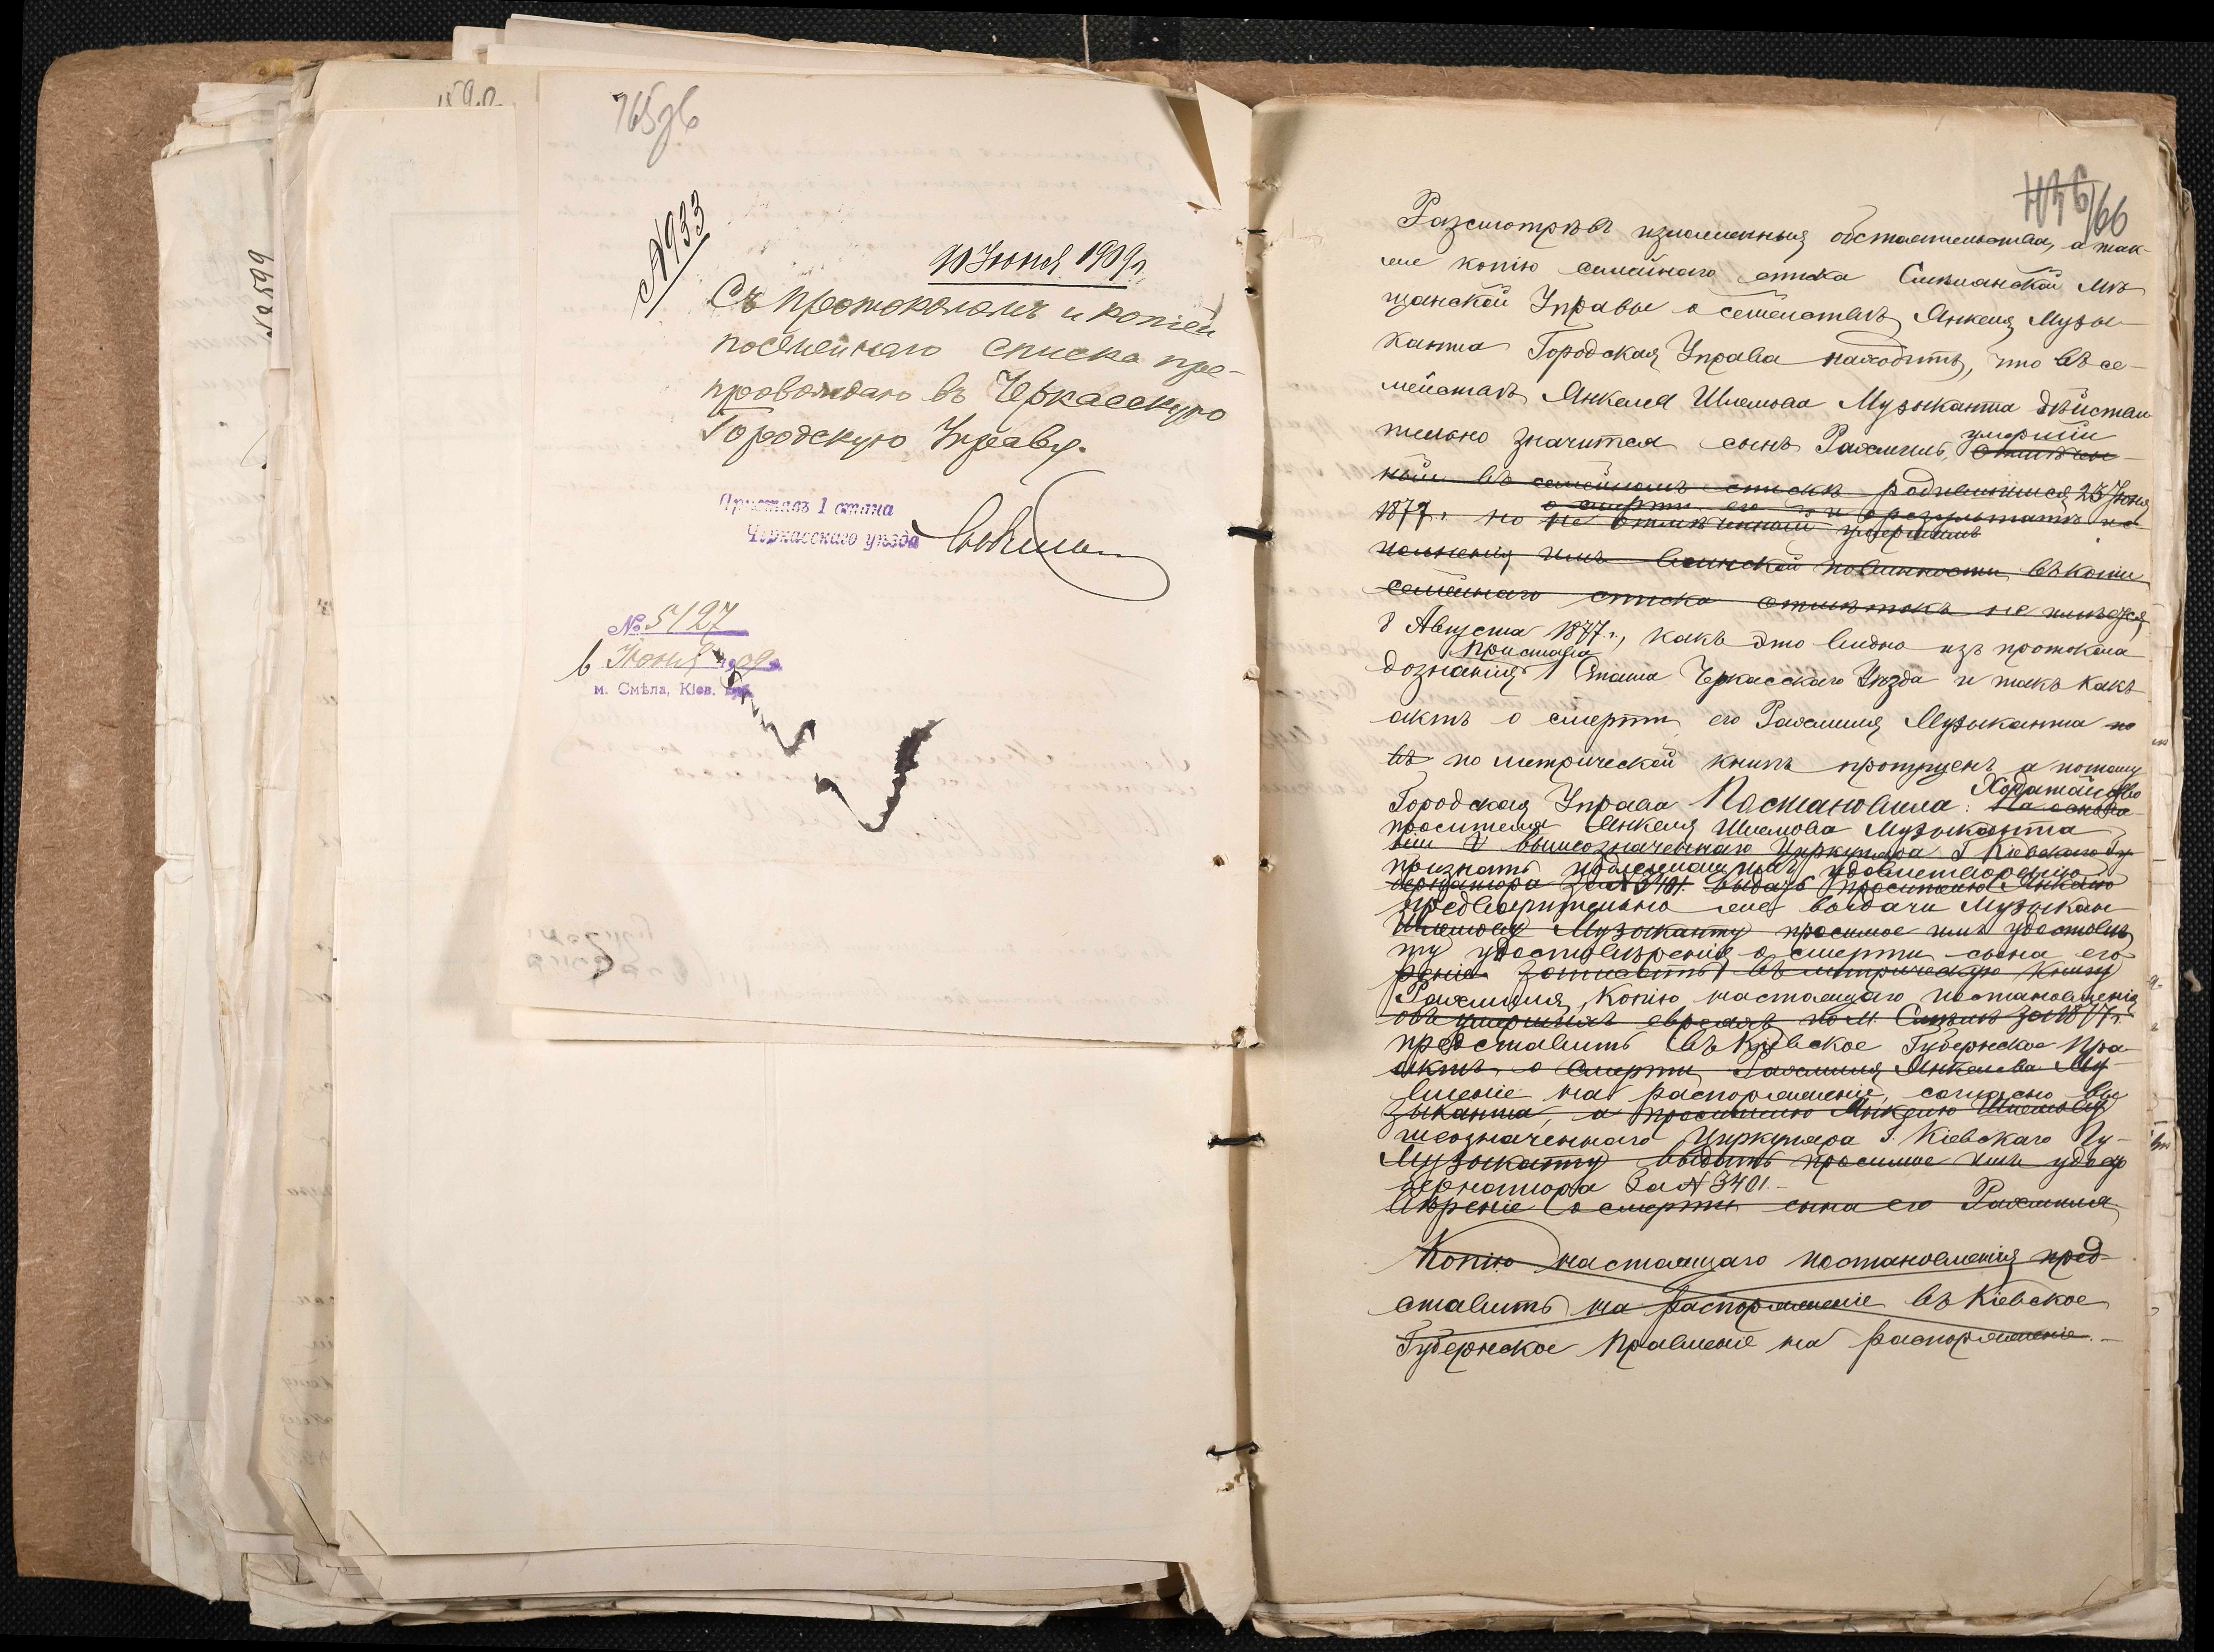 165 об
N 933
10 Юня 1909 г.
Съ протоколомъ и копіей
посемейнаго списка пре-
провождаю въ Черкасскую
Городскую Управу.
Приставъ 1 стана
Черкасскаго уѣзда
№ 5127
6 Юня 1909 г.
м. Смѣла, Кіев. губ.
166
Разсмотрѣвъ изложенныя обстоятельства, а так-
же копію семейнаго списка Смѣлянской Мѣ-
щанской Управы о семействѣ Янкеля Музы-
канта Городская Управа находитъ, что въ се-
мействѣ Янкеля Шлемова Музыканта дѣйстви-
тельно значится сынъ Рахмиль, умершій
отмѣчен-
ный въ семейномъ спискѣ родившимся 25 Юня
о смерти его и о результатѣ ис-
1877 г. но не отмѣченный умершимъ
полненія имъ воинской повинности въ копіи
семейнаго списка отмѣтокъ не имѣется
8 Августа 1877 г., какъ это видно изъ протокола
Пристава
дознанія 1 Стана Черкасскаго Уѣзда и такъ какъ
актъ о смерти его Рахмиля Музыканта по
въ по метрической книгѣ пропущенъ а потому
Городская Управа Постановила: Ходатайство
На основа-
просителя Янкеля Шлемова Музыканта
ніи вышеозначеннаго Циркуляра Г. Кіевскаго Гу-
признать подлежащимъ удовлетворенію
бернатора за N 3401 выдать просителю Янкелю
предварительно же выдачи Музыкан-
Шлемову Музыканту просимое имъ удостовѣ-
ту удостовѣренія о смерти сына его
реніе записать въ метрическую книгу
Рахмиля, копію настоящаго постановленія
объ умершихъ евреяхъ по м. Смѣлѣ за 1877 г.
представить въ Кіевское Губернское Пра-
актъ о смерти Рахмиля Янкелева Му-
вленіе на распоряженіе, согласно вы-
зыканта, а просителю Янкелю Шлемову
шеозначеннаго Циркуляра Г. Кіевскаго Гу-
Музыканту выдать просимое имъ удосто-
бернатора За N 3401.-
вѣреніе о смерти сына его Рахмиля
Копію настоящаго постановленія пред-
ставить на распоряженіе въ Кіевское
Губернское Правленіе на распоряженіе.-